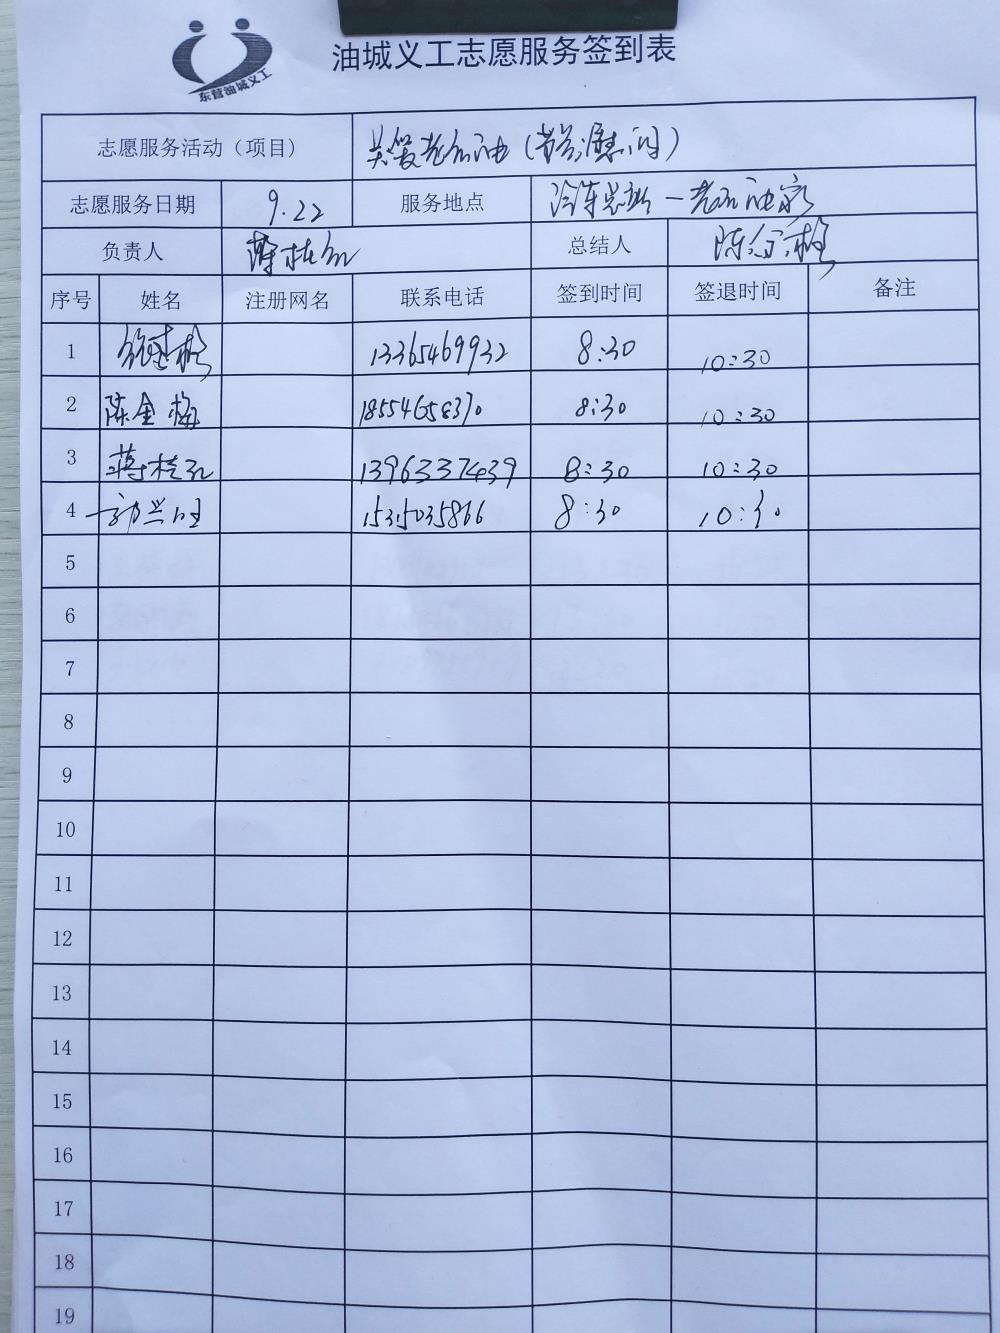 东营油城义工
油城义工志愿服务签到表
志愿服务活动（项目） 关爱老石油（节前慰问）
志愿服务日期 9.22 服务地点 老石油家
负责人 蒋桂红 总结人 陈金梅
序号 姓名 注册网名 联系电话 签到时间 签退时间 备注
1 13365469932 8:30 10:30
2 陈金梅 18554658370 8:30 10:30
3 蒋桂红 13963337439 8:30 10:30
4 15315035866 8:30 10:30
5
6
7
8
9
10
11
12
13
14
15
16
17
18
19